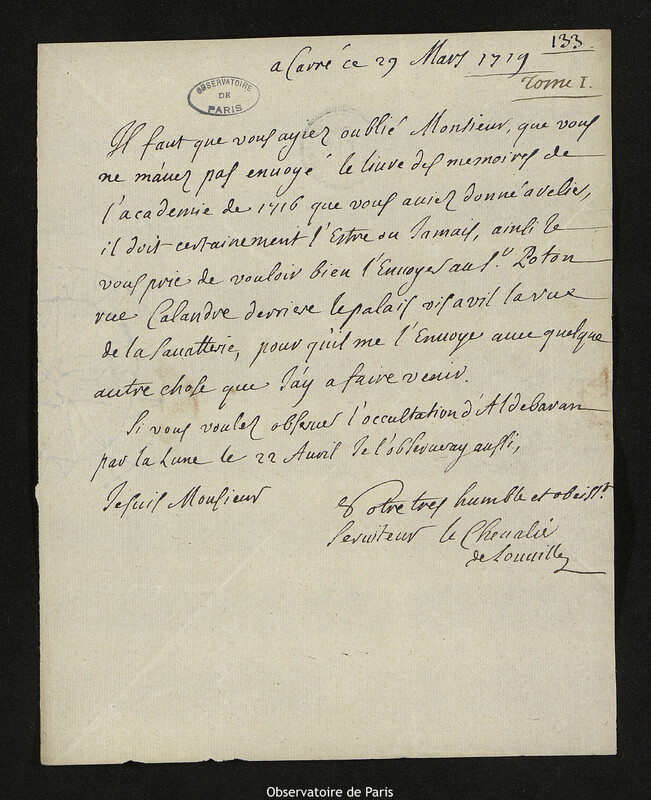 133.
a Carré ce 29 Mars 1719
Tome I.
OBSERVATOIRE
DE
PARIS
Il faut que vous ayiez oublié Monsieur, que vous
ne m'avez pas envoyé le livre des memoires de
l'academie de 1716 que vous aviez donné a relier,
il doit certainement l'Estre ou Jamais, ainsi Je
vous prie de vouloir bien l'Envoyer au Sr. Poton
rue Calandre derriere le palais vis avis la rue
de la Savatterie, pour qu'il me l'Envoye avec quelque
autre chose que J'ay a faire venir.
Si vous voulez observer l'occultation d'Aldebaran
par la Lune le 22 Avril Je l'observeray aussi,
Je suis Monsieur
Votre tres humble et obeisst.
Serviteur le Chevalie
de Louville
Observatoire de Paris